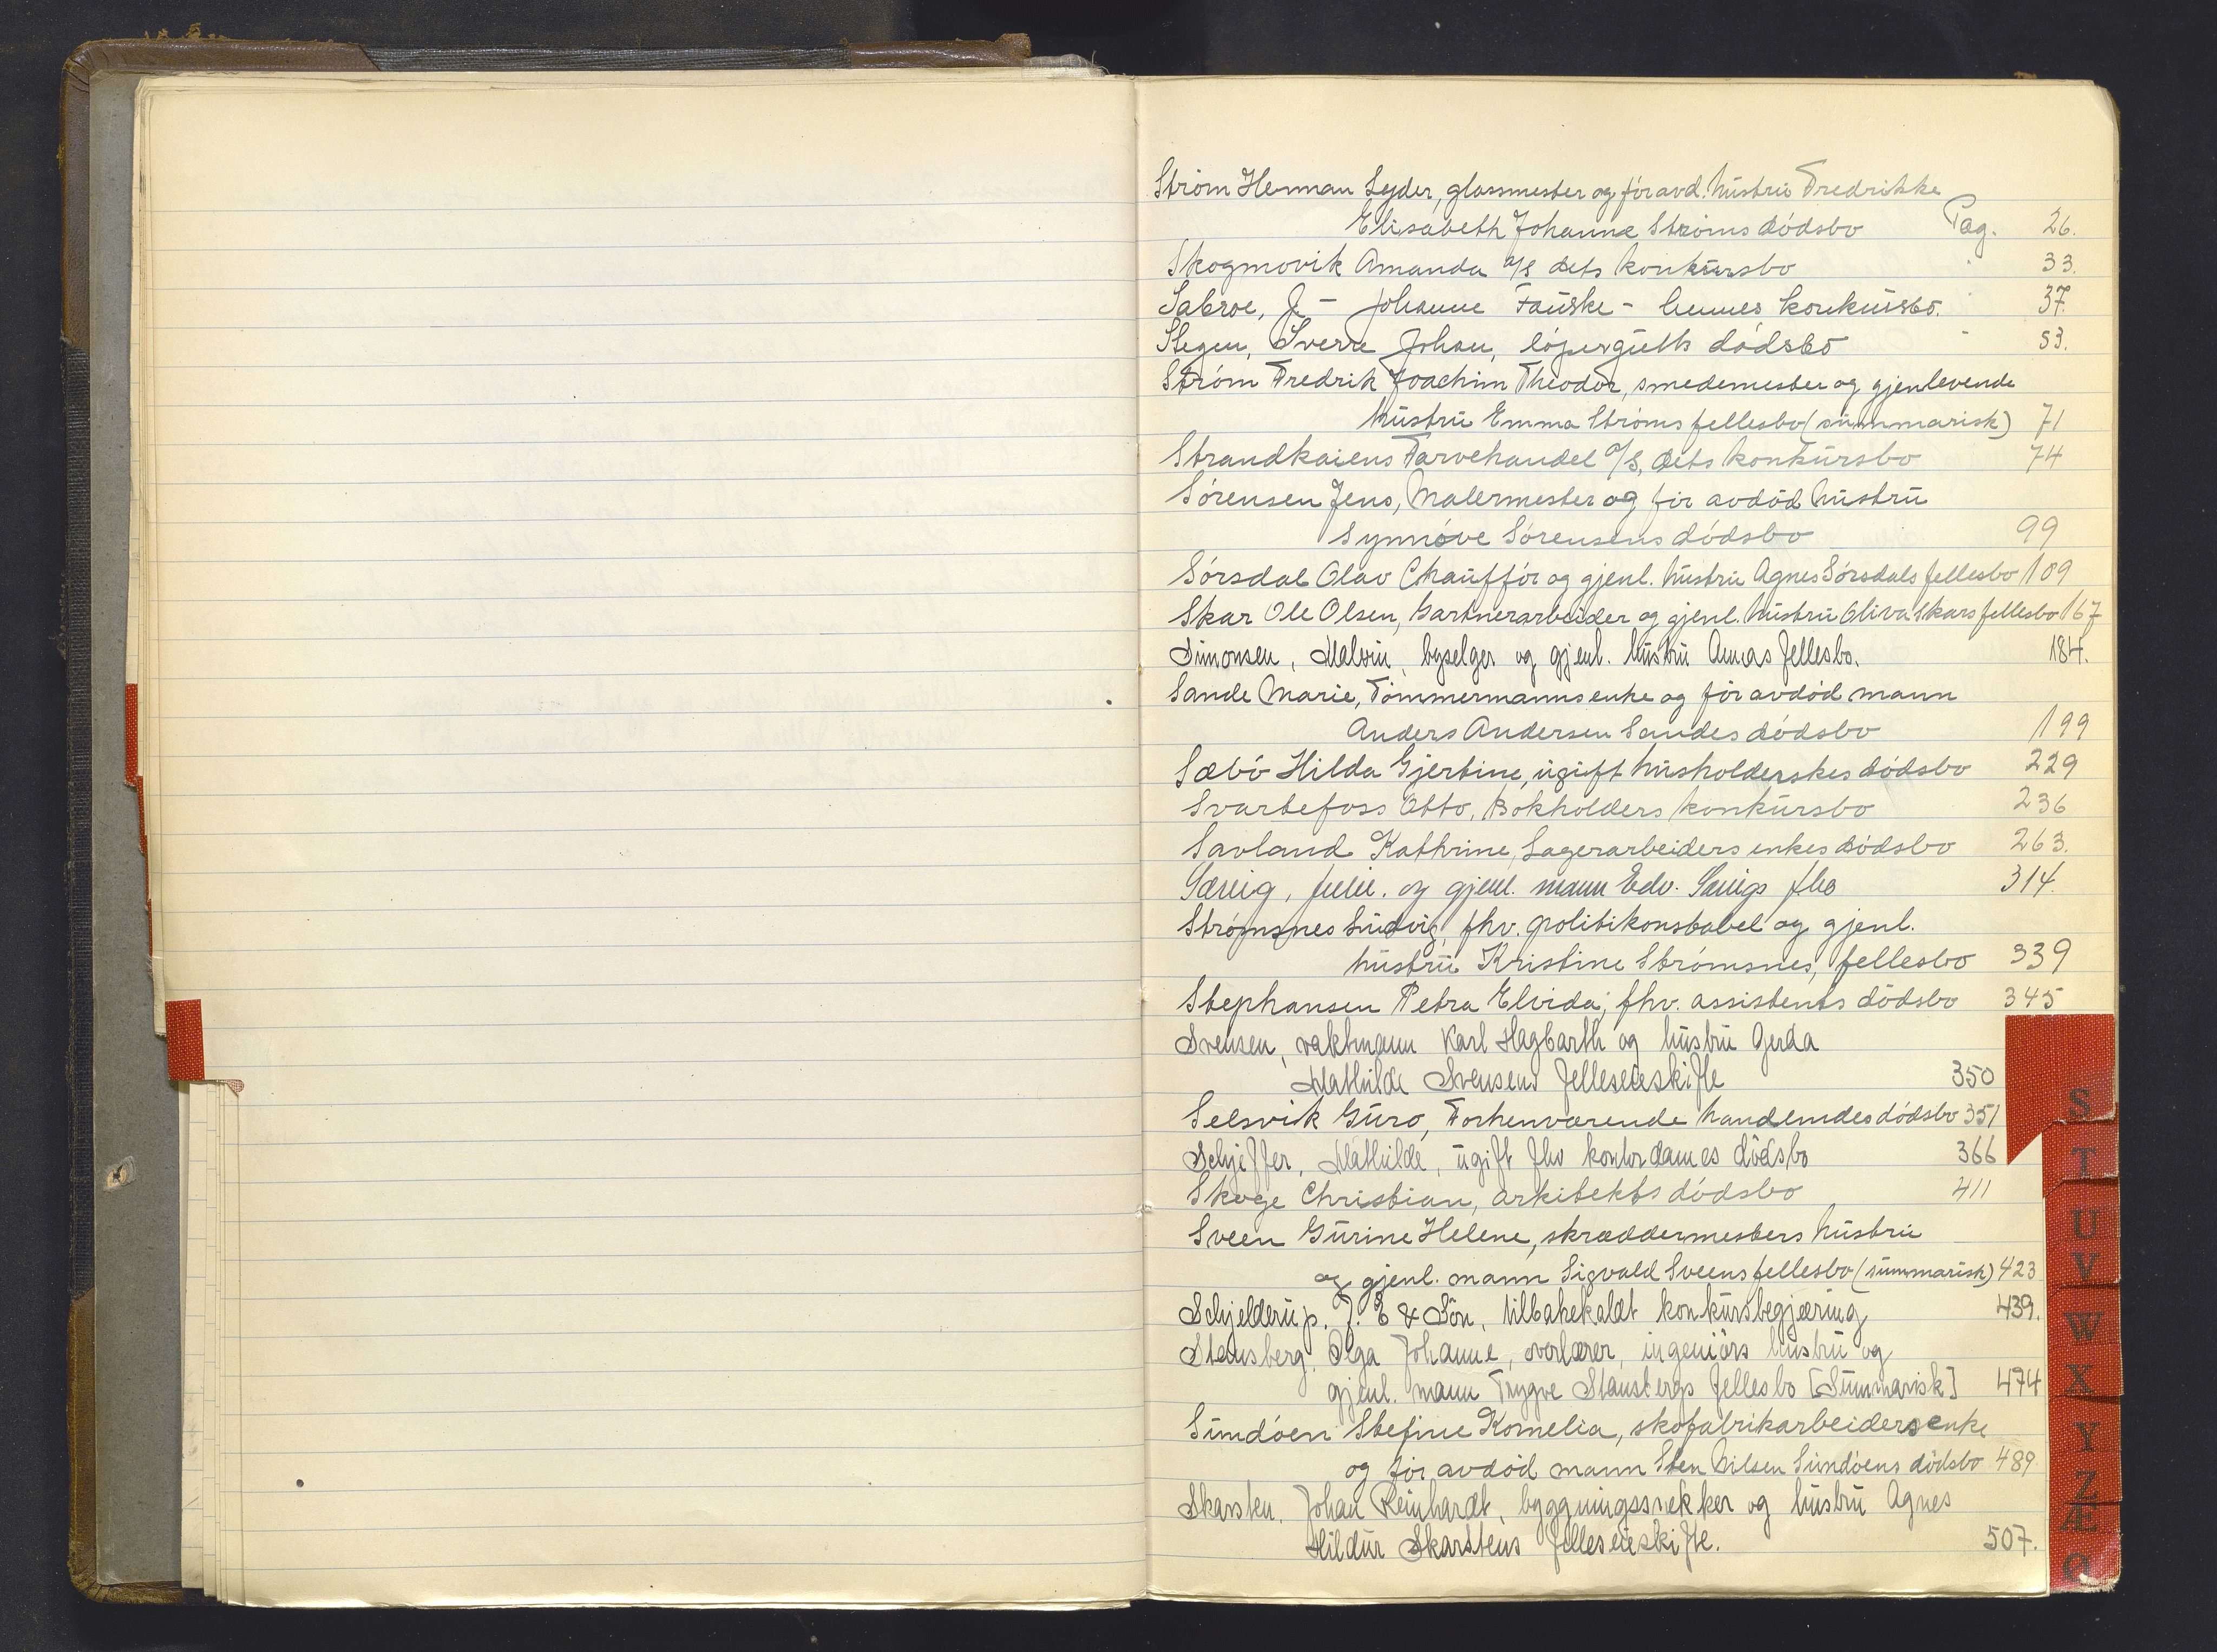 Ström Herman Lyder, glassmester og före avd. hüstrü Fredrikke
Elisabeth Johanne Ströms dödsbo Pag. 26.
Skogmovik Amanda A/S dets konkürsbo 33.
Sabroe, J - Johanne Faüske - hennes konkürsbo. 37.
Stegen, Sverre Johan, löpergütts dödsbo 53.
Ström Fredrik Joachim Theodor, smedemester og gjenlevende
hüstrü Emma Ströms fellesbo (sümmarisk) 71
Strandkaiens Farvehandel A/S, dets konkürsbo 74
Sörensen Jens, Malermester og för avdöd hüstrü
Synnöve Sörensens dödsbo 99
Sörsdal Olav Chaüfför og gjenl. hüstrü Agnes Sörsdals fellesbo 109
Skar Ole Olsen, Gartnerarbeider og gjenl. hüstrü Oliva Skars fellesbo 167
Simonsen, Malvin, byselger og gjenl. hüstrü Annas fellesbo. 184.
Sande Marie, Tömmermanns enke og för avdöd mann
Anders Andersen Sandes dödsbo 199
Sæbö Hilda Gjertine, ügift hüsholderskes dödsbo 229
Svartefoss Otto, Bokholders konkürsbo 236
Savland Kathrine, Lagerarbeiders enkes dödsbo 263.
Særvig, Julie. og gjenl. mann Edv. Særvigs fbo 314.
Strömsnes Lüdvig, fhv. politikonstabel og gjenl.
hüstrü Kristine Strömsnes, fellesbo 339
Stephansen Petra Elvida, fhv. assistents dödsbo 345
Svensen, vaktmann Karl Hagbarth og hüstrü Gerda
Mathilde Svensens felleseieskifte 350
Selsvik Güro, Forhenværende handlendes dödsbo 351
Schjeffer, Mathilde, ügift fhv kontordames dödsbo 366
Skoge Christian, arkitekts dödsbo 411
Sveen Gürine Helene, skræddermesters hüstrü
og gjenl. mann Sigvald Sveens fellesbo (sümmarisk) 423
Schjelderüp. J. E & Sön, tilbakekaldt konkürsbegjæring 439.
Stensberg, Olga Johanne, overlærer, ingeniörs hüstrü og
gjenl. mann Trygve Stensbergs fellesbo [Sümmarisk] 474
Sündöen Stefine Kornelia, skofabrikarbeiders enke
og för avdöd mann Sten Nilsen Sündöens dödsbo 489
Skarsten, Johan Reinhardt, bygningssnekker og hüstrü Agnes
Hildür Skarstens felleseieskifte. 507.
S
T
U
V
W
X
Y
Z
Æ
Ø